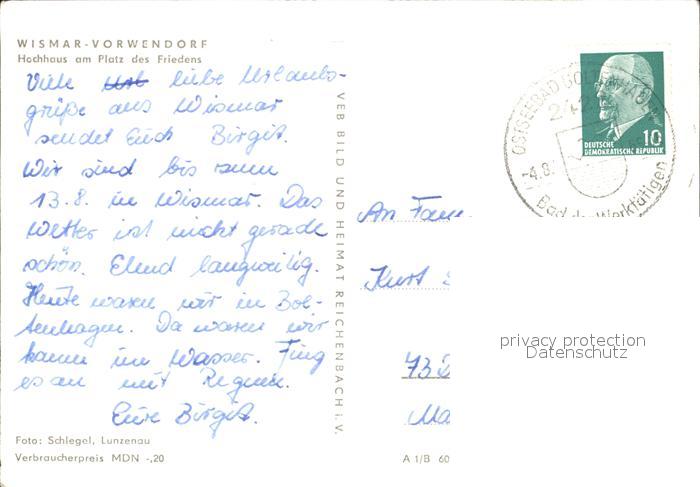 WISMAR-VORWENDORF
Hochhaus am Platz des Friedens
Viele liebe Urlaubs-
grüße aus Wismar
sendet Euch Birgit.
Wir sind bis zum
13.8. in Wismar. Das
Wetter ist nicht gerade
schön. Elend langweilig.
Heute waren wir in Bol-
tenhagen. Da waren wir
kaum im Wasser. Fing
es an mit Regnen.
Eure Birgit.
Foto: Schlegel, Lunzenau
Verbraucherpreis MDN -,20
VEB BILD UND HEIMAT REICHENBACH i. V.
OSTSEEBAD BOLTENHAGEN
242
-4.8.
Bad der Werktätigen
DEUTSCHE
DEMOKRATISCHE REPUBLIK
10
An Fam
Kurt
73
Ma
A 1/B 60
privacy protection
Datenschutz